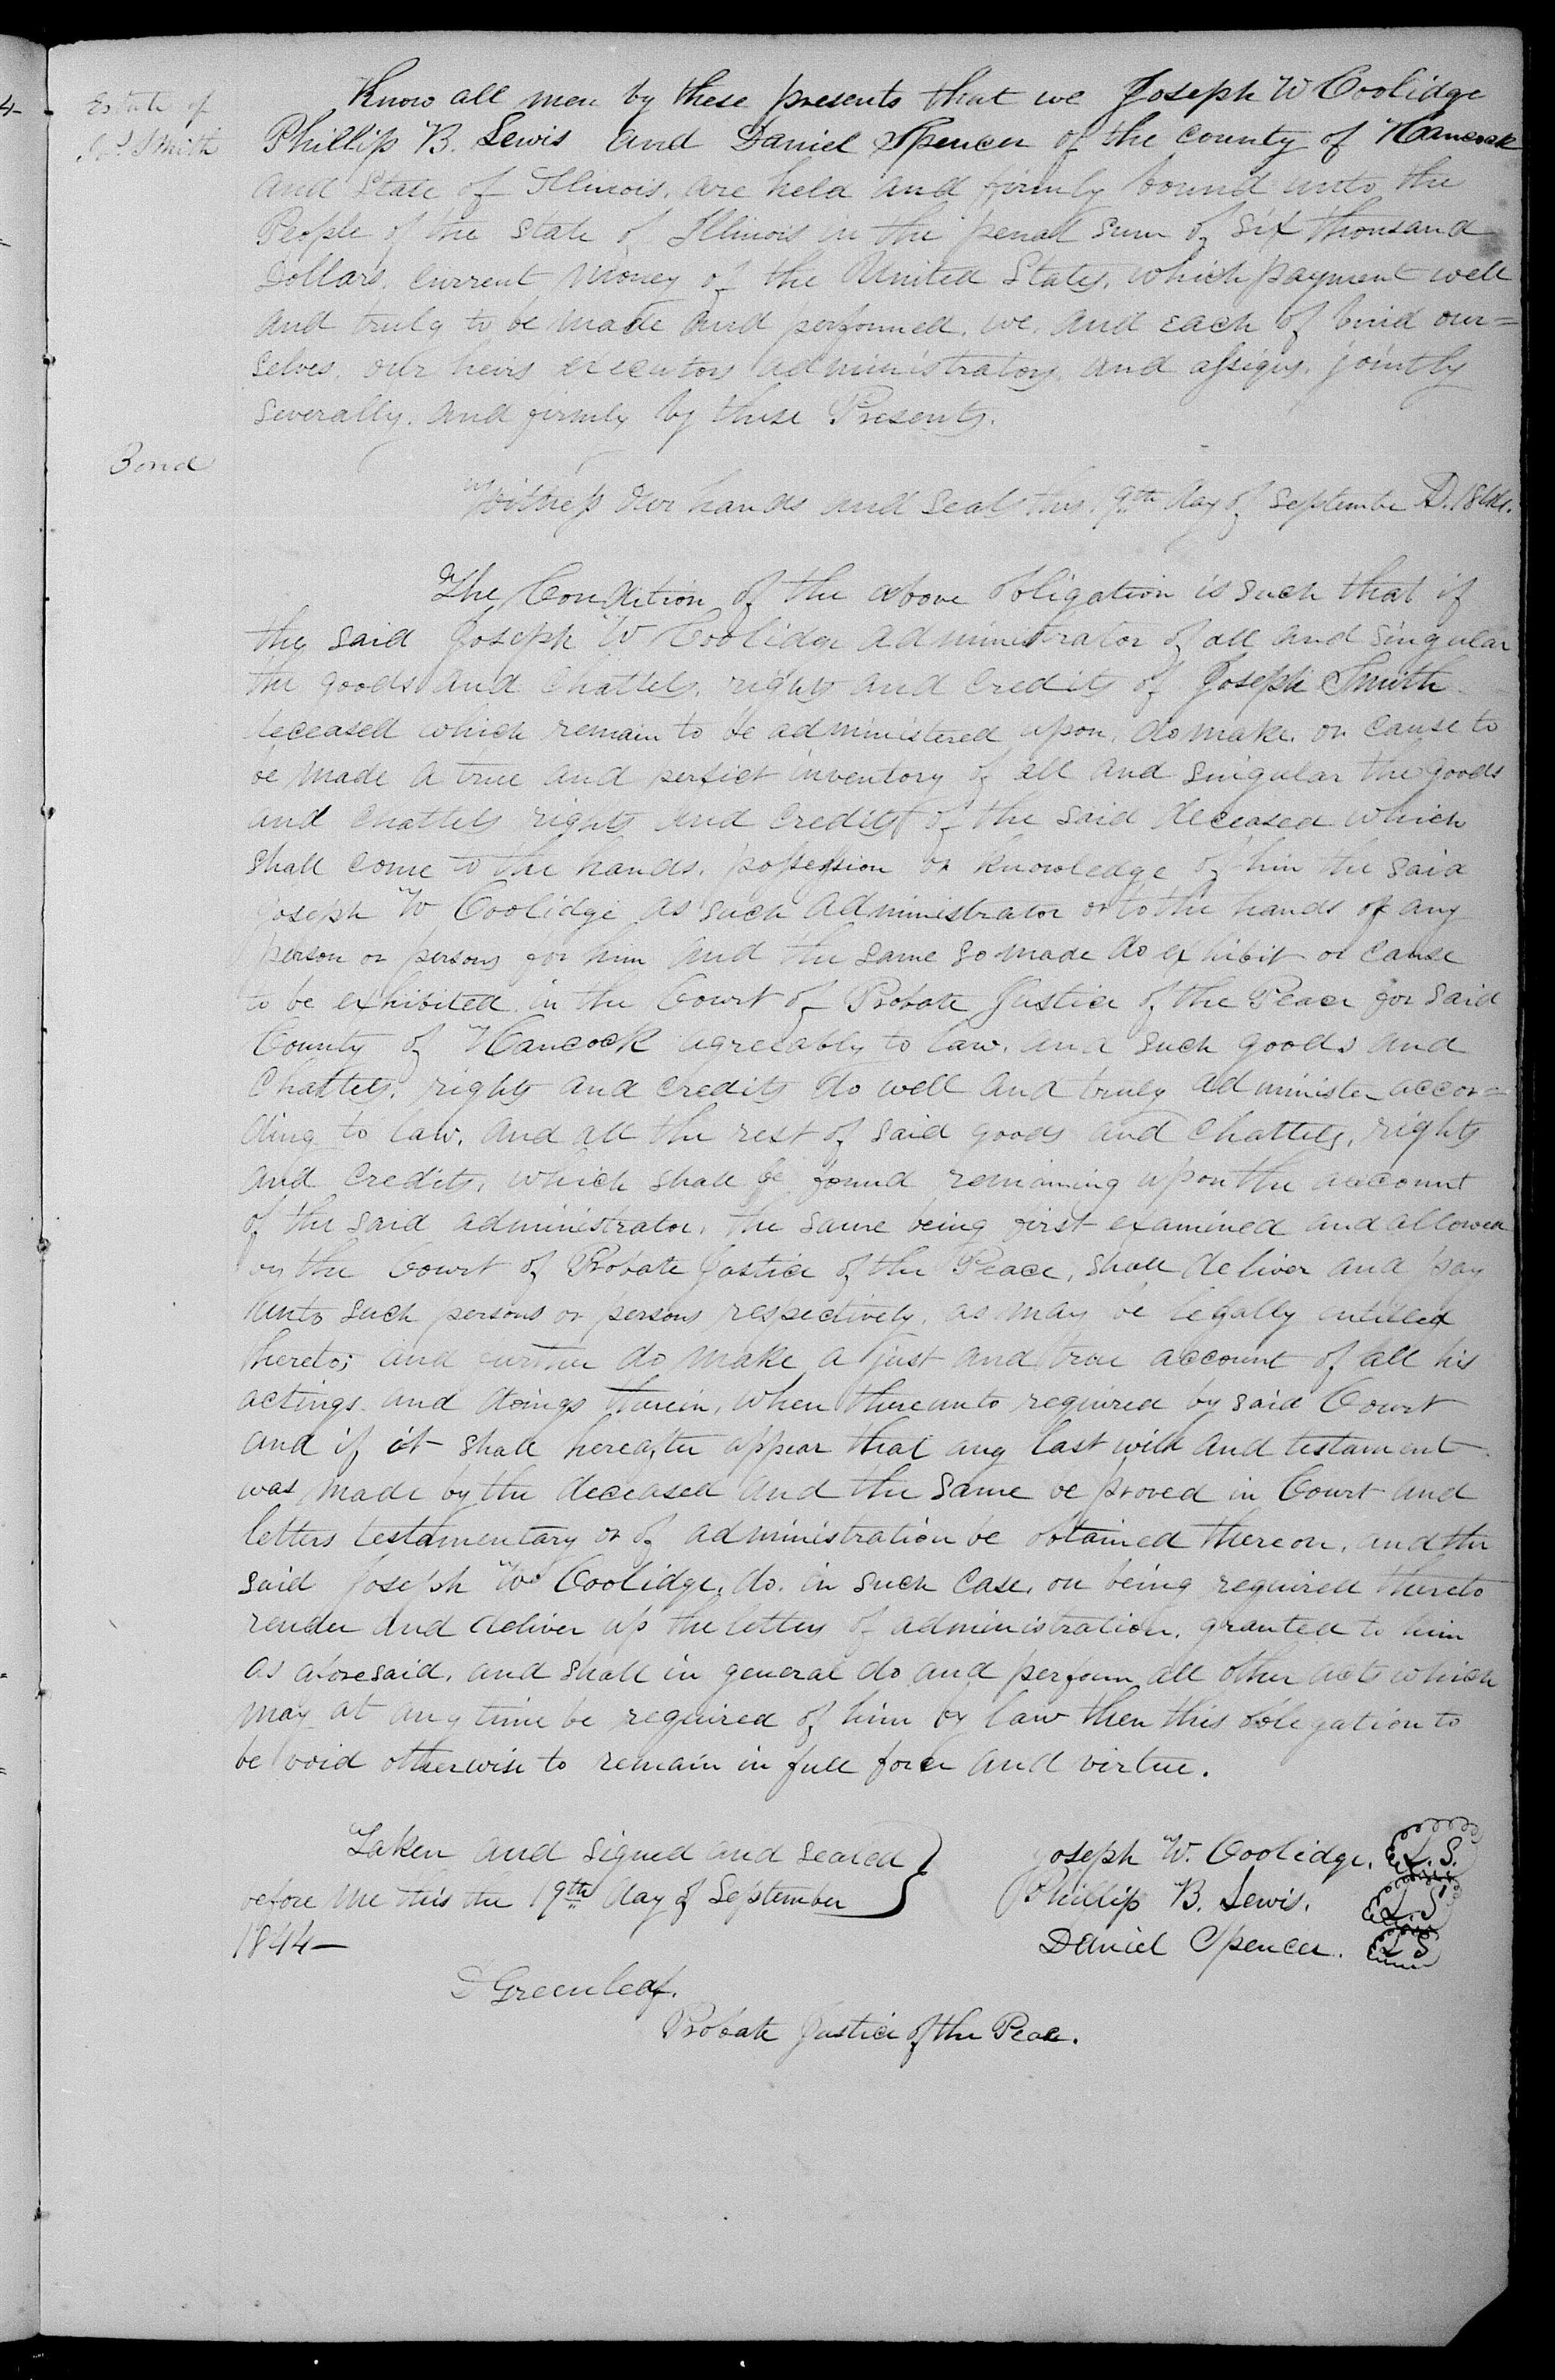 Estate of
Jos. Smith
Know all men by these presents that we Joseph W Coolidge
Phillip B. Lewis and Daniel Spencer of the county of Hancock
and State of Illinois, are held and firmly bound unto the
People of the State of Illinois in the penal sum of six thousand
Dollars, current money of the United States, which payment well
and truly to be made and performed, we, and each of bind our=
selves, our heirs executors administrators, and assigns, jointly
severally, and firmly by these Presents.
Bond
Witness our hands and seals this 9th day of September A.D. 1844.
The Condition of the above obligation is such that if
the said Joseph W Coolidge administrator of all and singular
the goods and chattels, rights and credits of Joseph Smith
deceased which remain to be administered upon, do make, or cause to
be made a true and perfect inventory of all and singular the goods
and chattels rights and credits of the said deceased which
shall come to the hands, possession or knowledge of him the said
Joseph W Coolidge as such administrator or to the hands of any
person or persons for him and the same so made do exhibit or cause
to be exhibited in the Court of Probate Justice of the Peace for said
County of Hancock agreeably to law, and such goods and
chattels, rights and credits do well and truly administer accor=
ding to law, and all the rest of said goods and chattels, rights
and credits, which shall be found remaining upon the account
of the said administrator, the same being first examined and allowed
by the Court of Probate Justice of the Peace, shall deliver and pay
unto such persons or persons respectively, as may be legally entitled
thereto; and further do make a just and true account of all his
actings and doings therein, when thereunto required by said Court
and if it shall hereafter appear that any last will and testament
was made by the deceased and the same be proved in Court and
letters testamentary or of administration be obtained thereon, and the
said Joseph W. Coolidge, do, in such case, on being required thereto
render and deliver up the letters of administration, granted to him
as aforesaid, and shall in general do and perform all other acts which
may at any time be required of him by law then this obligation to
be void otherwise to remain in full force and virtue.
Taken and signed and sealed
before me this the 19th day of September
1844—
Joseph W. Coolidge. L.S.
Phillip B. Lewis. L.S
Daniel Spencer. LS
D Greenleaf.
Probate Justice of the Peace.